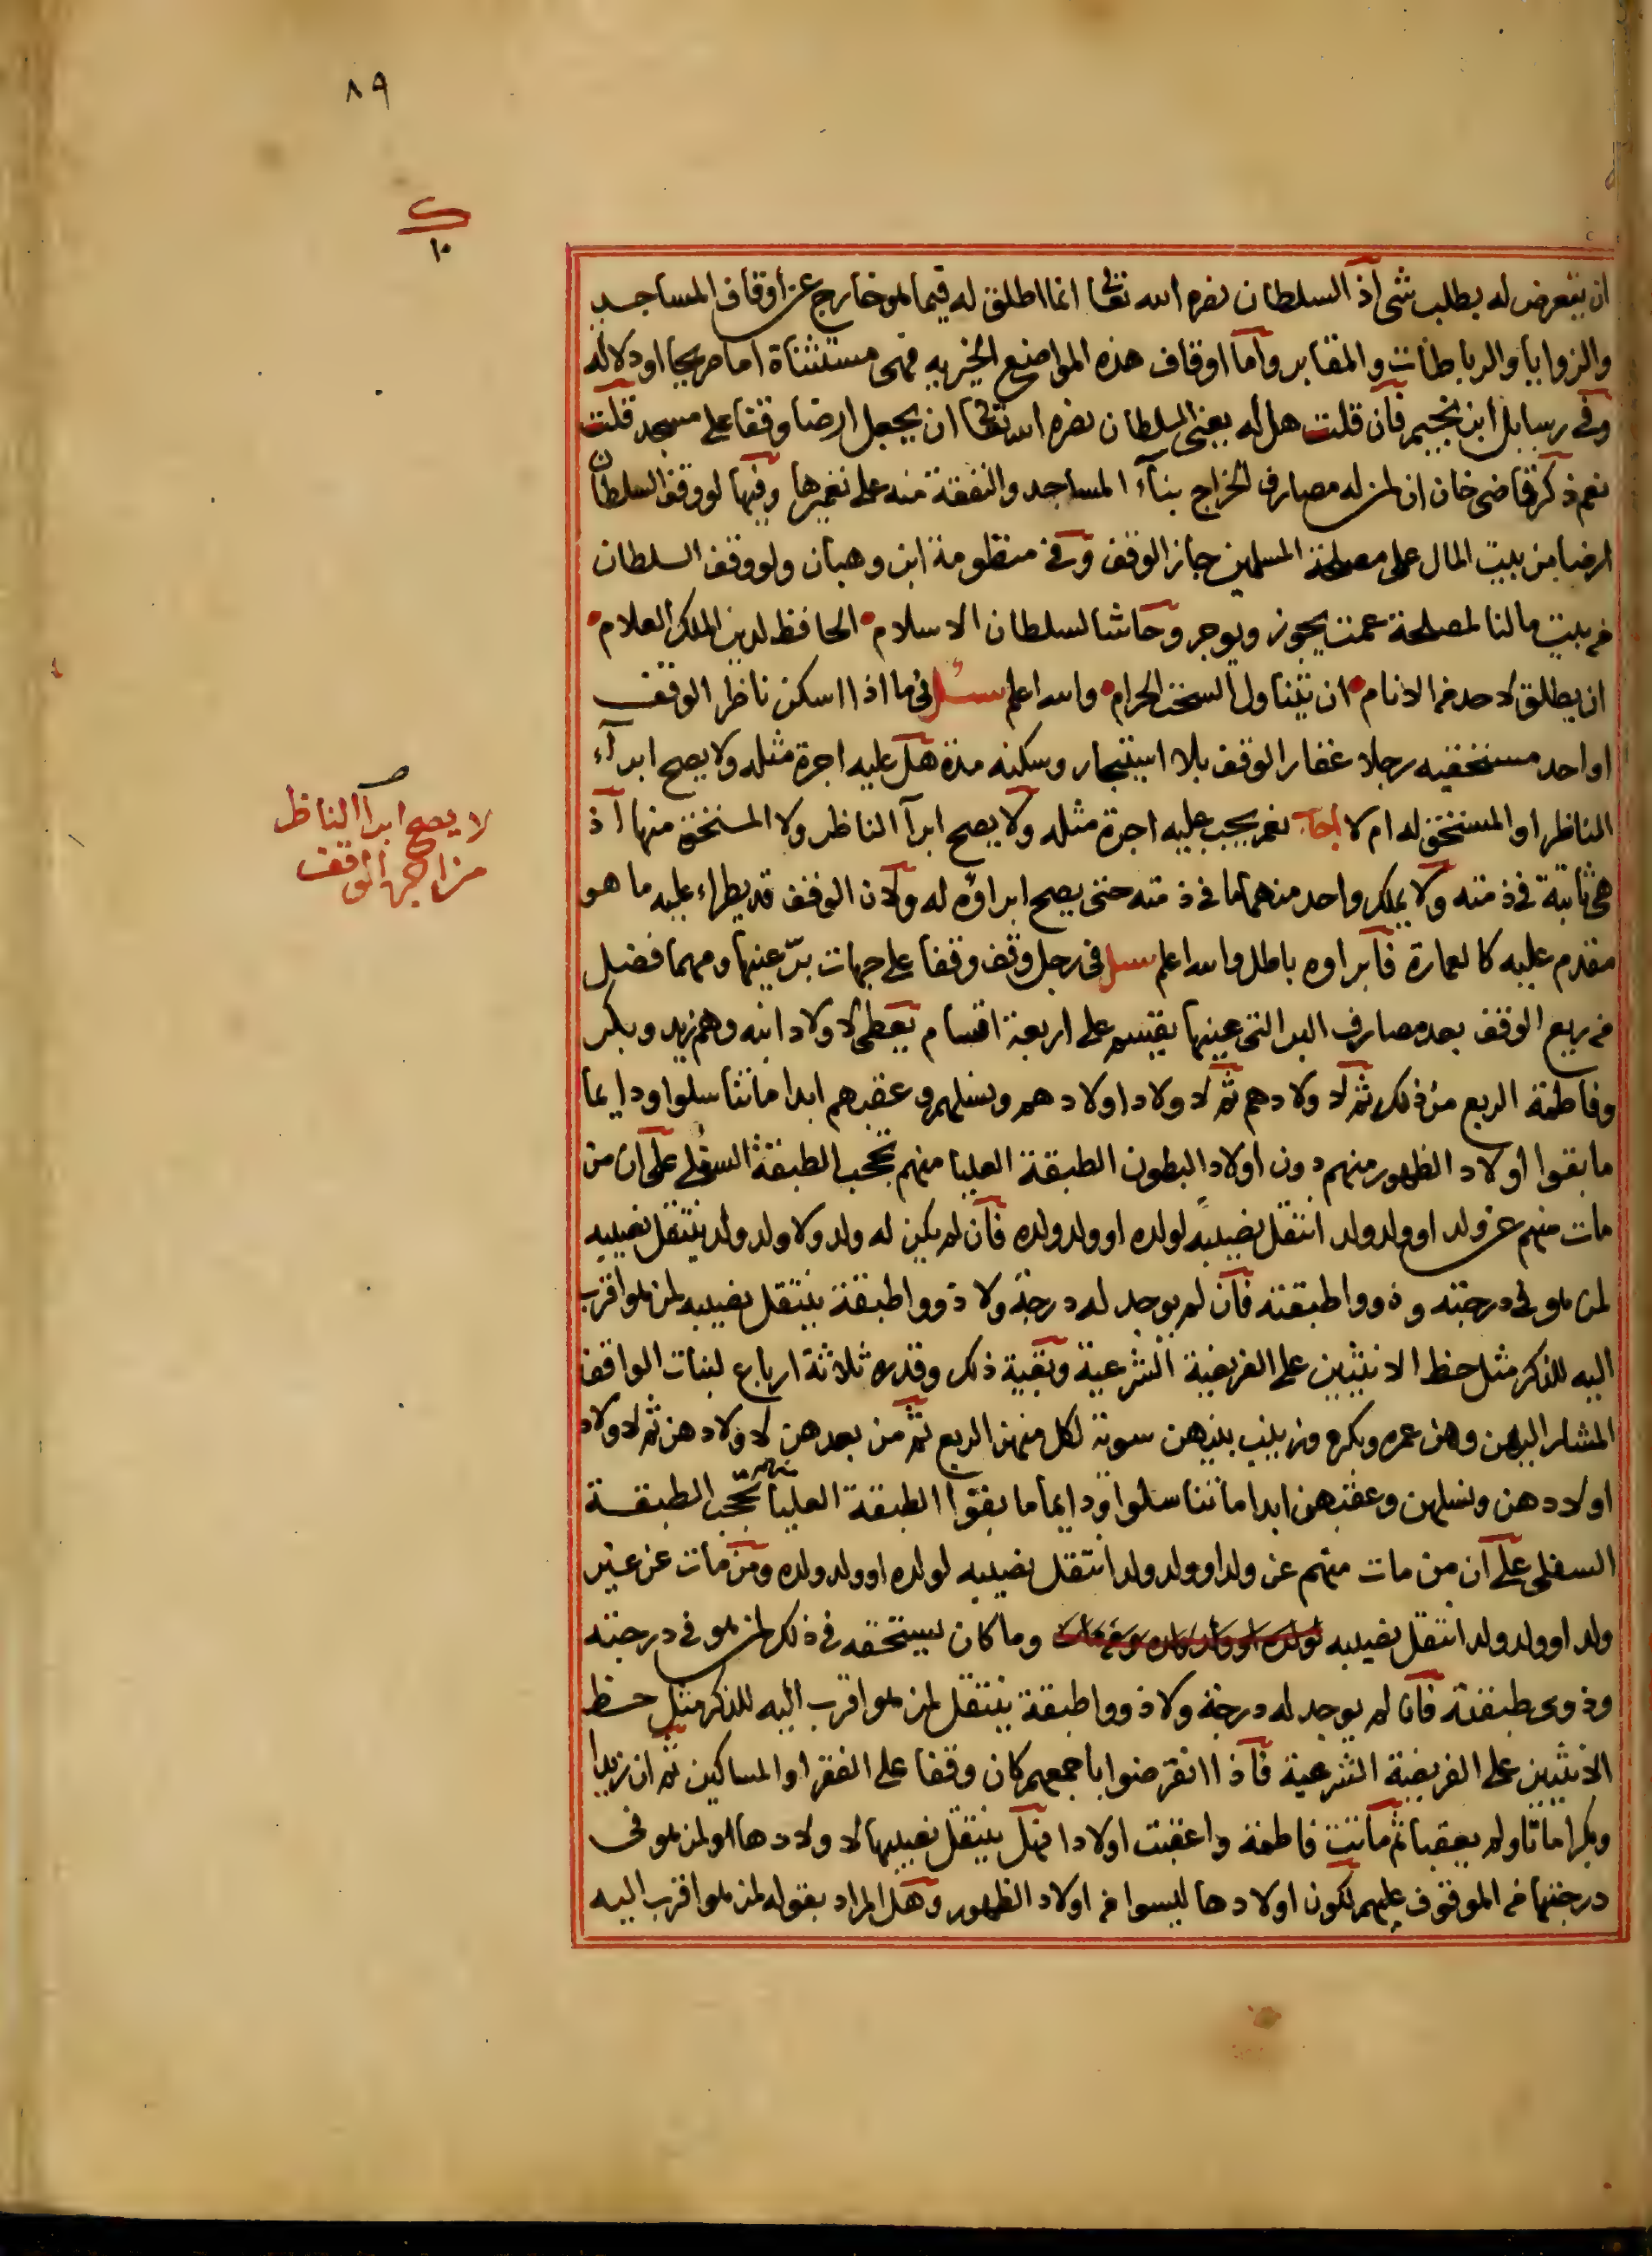 ٨٩
ك
١٠
ان يتعرض له بطلب شى اذ السلطان نصره الله تعالى انما اطلق له فيما هو خارج عن أوقاف المساجد
والزوايا والرباطات والمقابر واما اوقاف هذه المواضع الخيريه فهى مستثناة اما صريحا او دلالة
وفى رسايل ابن نجيم فان قلت هل له يعنى السلطان نصره الله تعالى ان يجعل ارضا وقفا على مسجد قلت
نعم ذكر قاضى خان ان من له مصارف الخراج بناء المساجد والنفقة منه على تعميرها وفيها لو وقف السلطان
ارضا من بيت المال على مصلحة المسلمين جاز الوقف وفى منظومة ابن وهبان ولو وقف السلطان
من بيت مالنا لمصلحة عمت يجوز ويوجر وحاشا لسلطان الاسلام الحافظ لدين الملك العلام
ان يطلق لاحد من الانام ان يتناول السحت الحرام والله اعلم سئل فى ما اذا اسكن ناظر الوقف
او احد مستحقيه رجلا عقار الوقف بلا استيجار وسكنه مدة هل عليه اجرة مثله ولا يصح ابرآء
الناظر او المستحق له ام لا اجاب نعم يجب عليه اجرة مثله ولا يصح ابرآ الناظر ولا المستحق منها اذ
هى ثابتة فى ذمته ولا يملك واحد منهما ما فى ذمته حتى يصح ابراؤه له ولان الوقف قد يطراء عليه ما هو
مقدم عليه كالعمارة فابراوه باطل والله اعلم سئل فى رجل وقف وقفا على جهات برّ عينها ومهما فضل
من ريع الوقف بعد مصارف البر التى عينها يقسم على اربعة اقسام يعطى لاولاد ابنه وهم زيد وبكر
وفاطمة الربع من ذلك ثم لاولادهم ثم لاولاد اولادهم ونسلهم وعقبهم ابدا ما تناسلوا ودايما
ما بقوا اولاد الظهور منهم دون اولاد البطون الطبقة العليا منهم تحجب الطبقة السفلى على ان من
مات منهم عن ولد او ولد ولد انتقل نصيبه لولده او ولد ولده فان لم يكن له ولد ولا ولد ولد ينتقل نصيبه
لمن هو فى درجته وذووا طبقته فان لم يوجد له درجة ولا ذووا طبقة ينتقل نصيبه لمن هو اقرب
اليه للذكر مثل حظ الانثيين على الفريضة الشرعية وبقية ذلك وقدره ثلاثة ارباع لبنات الواقف
المشار اليهن وهن عمره وبكره وزينب بينهن سوية لكل منهن الربع ثم من بعدهن لاولادهن ثم لاولاد
اولادهن ونسلهن وعقبهن ابدا ما تناسلوا ودايما ما بقوا الطبقة العليا منهم تحجب الطبقة
السفلى على ان من مات منهم عن ولد او ولد ولد انتقل نصيبه لولده او ولد ولده ومن مات عن غير
ولد او ولد ولد انتقل نصيبه لولده او ولد ولده ومن مات وما كان يستحقه فى ذلك لمن هو فى درجته
وذوى طبقته فان لم يوجد له درجة ولا ذووا طبقة ينتقل لمن هو اقرب اليه للذكر مثل حظ
الانثيين على الفريضة الشرعية فاذا انقرضوا باجمعهم كان وقفا على الفقرا والمساكين ثم ان زيدا
وبكرا ماتا ولم يعقبا ثم ماتت فاطمة واعقبت اولادا فهل ينتقل نصيبها لاولادها او لمن هو فى
درجتها من الموقوف عليهم لكون اولادها ليسوا من اولاد الظهور وهل المراد بقوله لمن هو اقرب اليه
لا يصح ابرآ الناظر
من اجرة الوقف